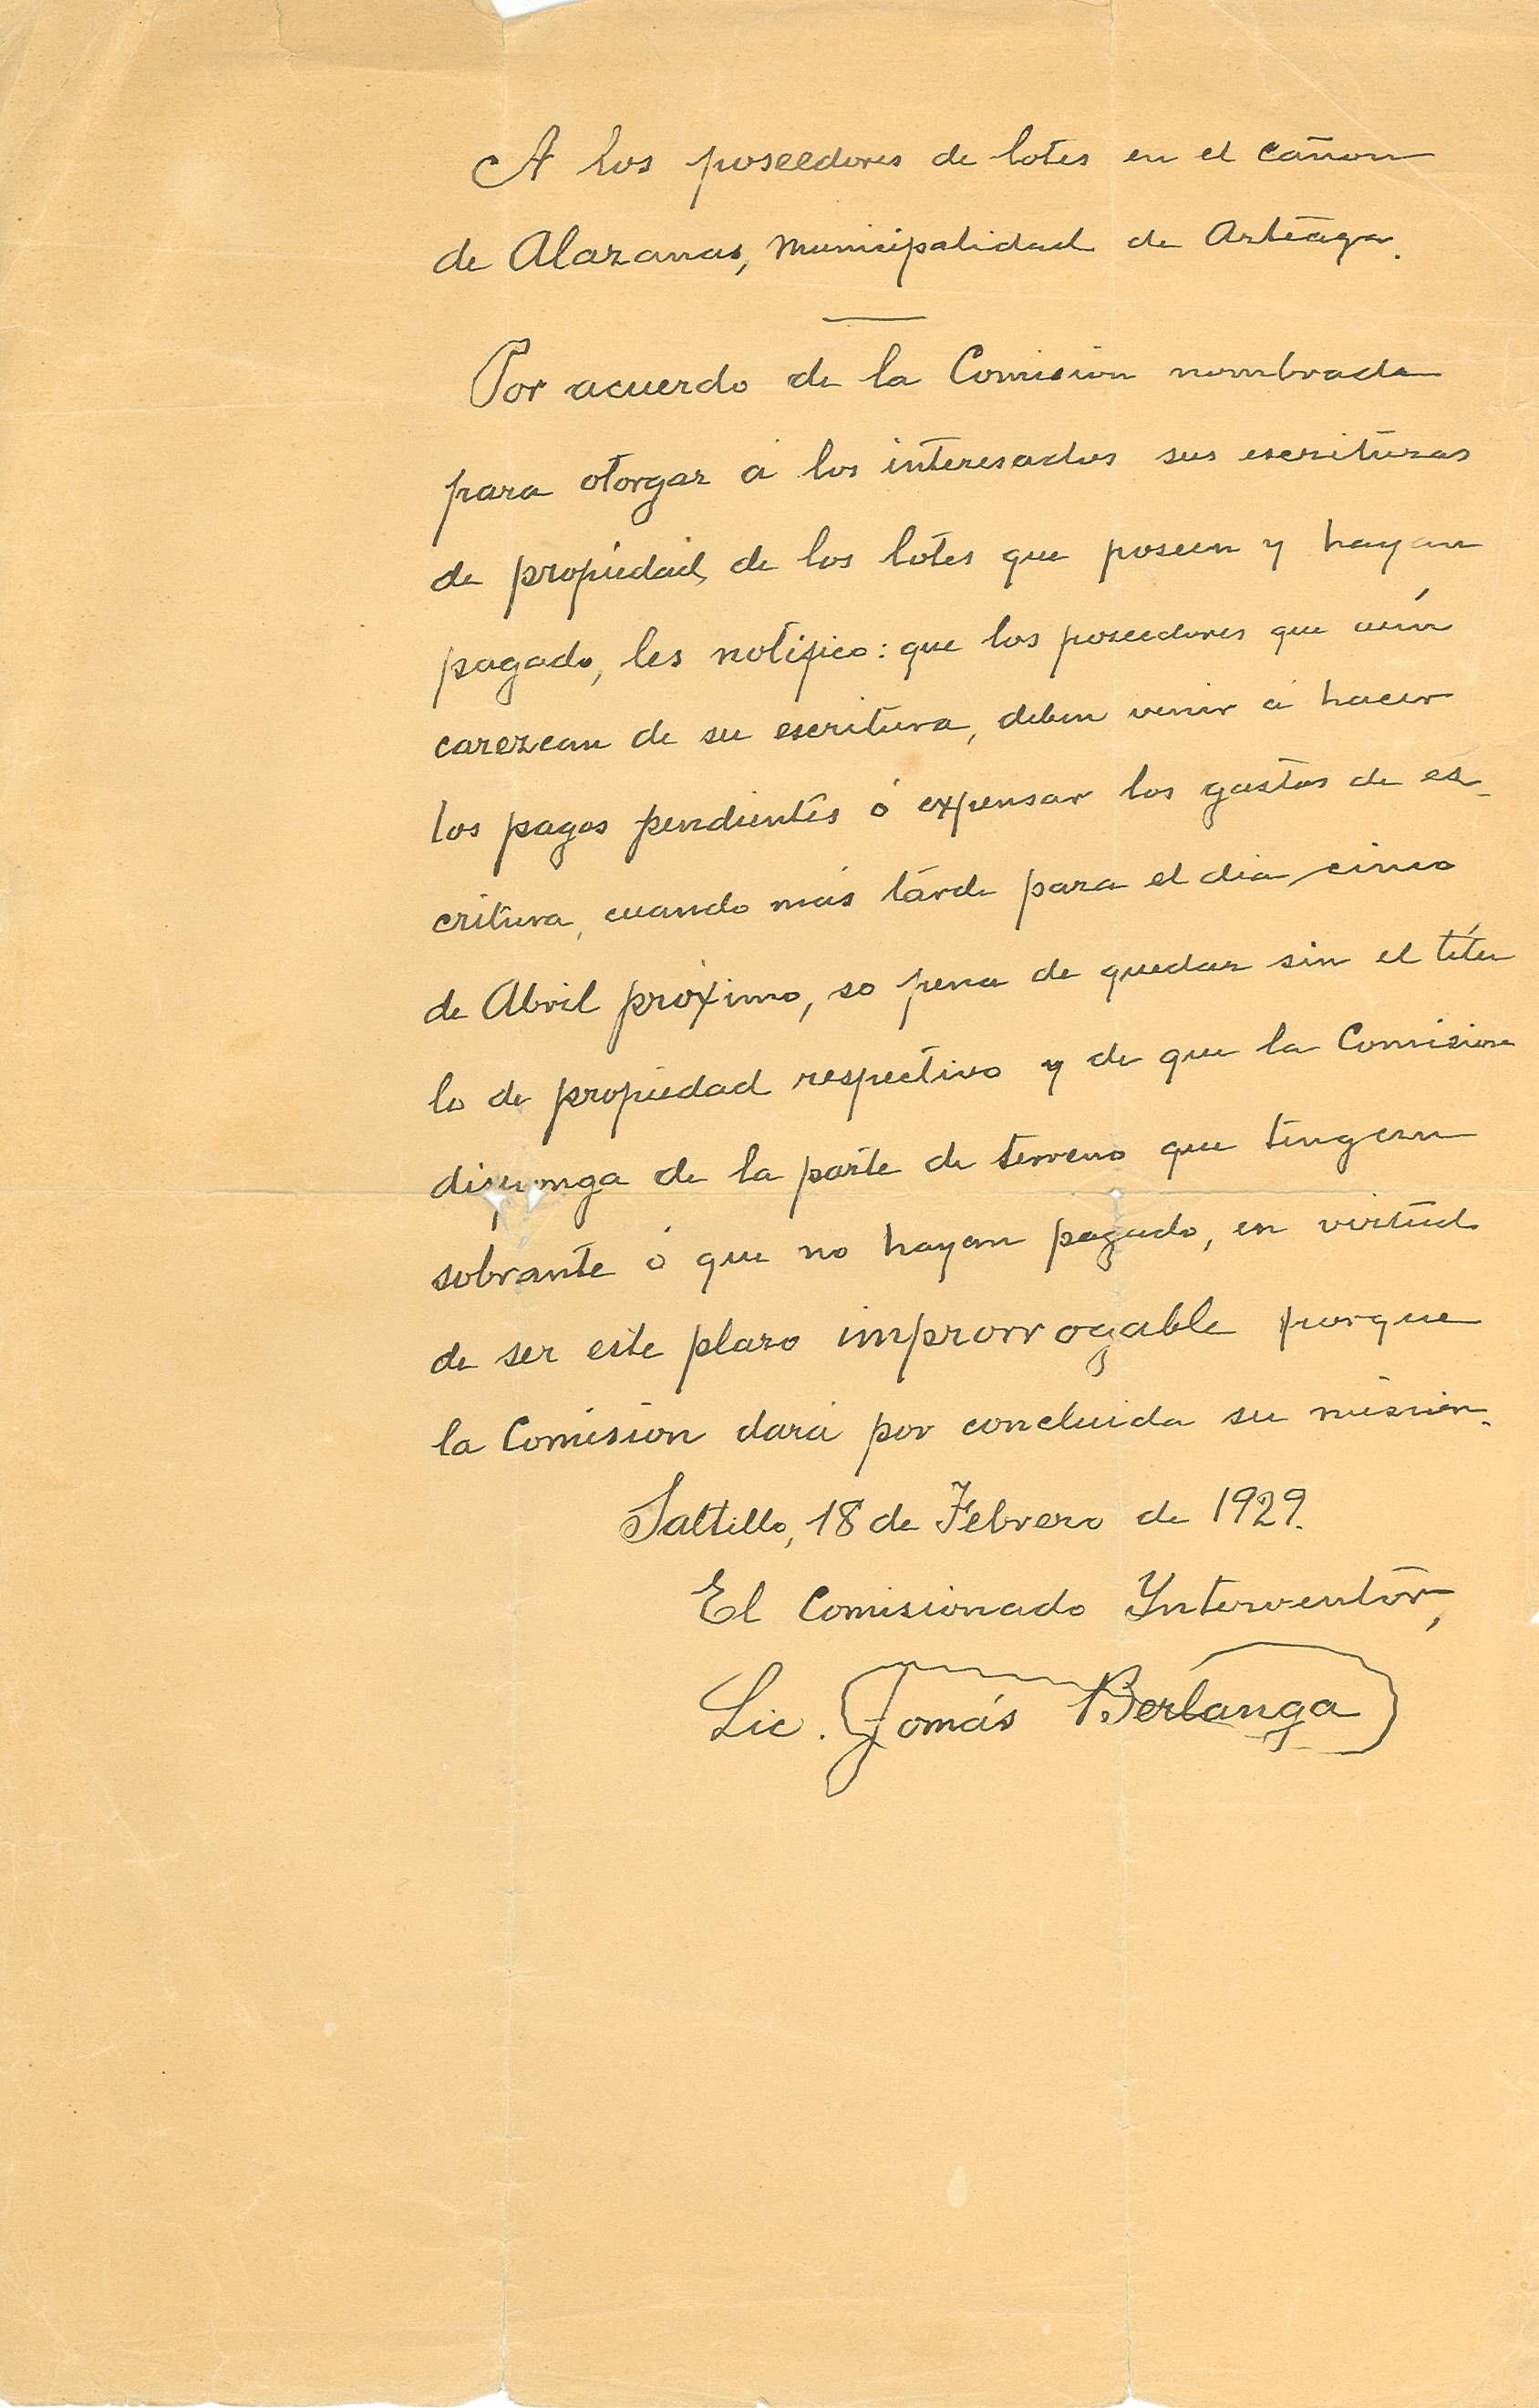 A los poseedores de lotes en el cañon
de Alazanas, Municipalidad de Arteaga.
Por acuerdo de la Comision nombrada
para otorgar á los interesados sus escrituras
de propiedad, de los lotes que poseen y hayan
pagado, les notifico: que los poseedores que aún
carezcan de su escritura, deben venir á hacer
los pagos pendientes ó expensar los gastos de es-
critura, cuando más tarde para el dia cinco
de Abril próximo, so pena de quedar sin el títu
lo de propiedad respectivo y de que la Comision
disponga de la parte de terreno que tengan
sobrante ó que no hayan pagado, en virtud
de ser este plazo improrrogable porque
la Comision dará por concluida su mision.
Saltillo, 18 de Febrero de 1929.
El Comisionado Ynterventor,
Lic. Tomás Berlanga